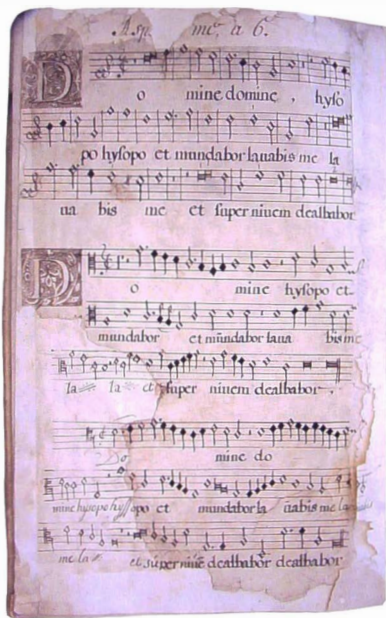 Asp. me, a 6.
Domine domine, hyso
po hysopo et mundabor lauabis me la
ua bis me et super niuem dealbabor
Domine hysopo et
mundabor et mũndabor laua bis me
la la et super niuem dealbabor.
Do mine do
mine hysopo hyssopo et mundabor la uabis me
me la et super niuẽ dealbabor dealbabor